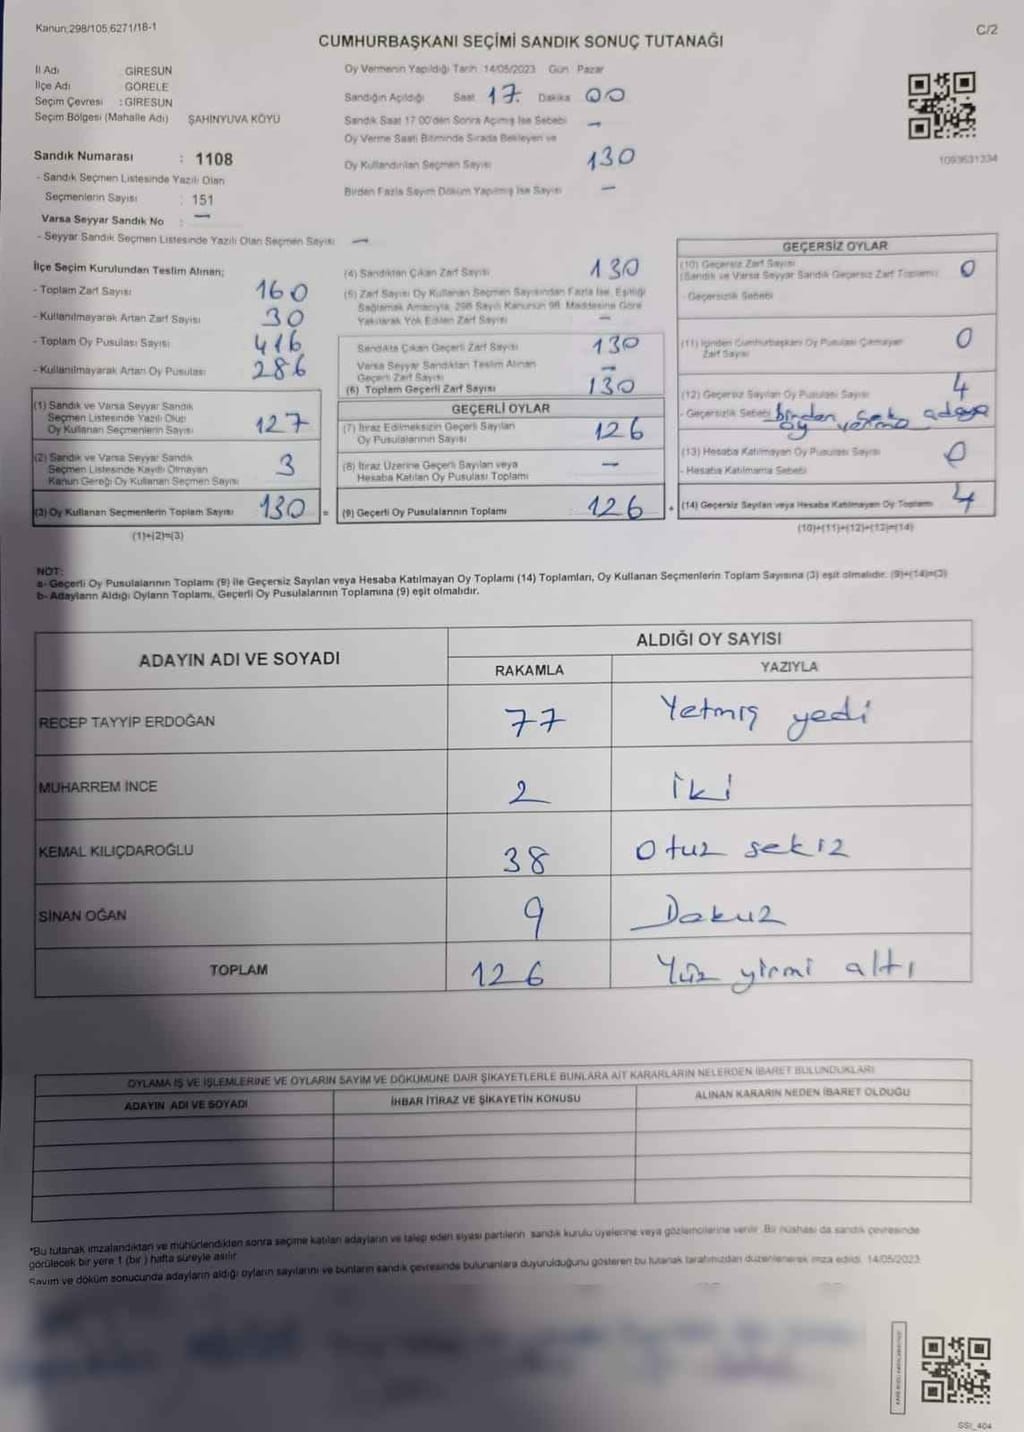 Kanun;298/105,6271/18-1
C/2
CUMHURBAŞKANI SEÇİMİ SANDIK SONUÇ TUTANAĞI
İl Adı : GİRESUN
İlçe Adı : GÖRELE
Seçim Çevresi : GİRESUN
Seçim Bölgesi (Mahalle Adı) ŞAHİNYUVA KÖYÜ
Sandık Numarası : 1108
- Sandık Seçmen Listesinde Yazılı Olan
Seçmenlerin Sayısı : 151
Varsa Seyyar Sandık No : —
- Seyyar Sandık Seçmen Listesinde Yazılı Olan Seçmen Sayısı —
Oy Vermenin Yapıldığı Tarih 14/05/2023 Gün : Pazar
Sandığın Açıldığı Saat 17: Dakika 00
Sandık Saat 17.00'den Sonra Açılmış İse Sebebi —
Oy Verme Saati Bitiminde Sırada Bekleyen ve
Oy Kullandırılan Seçmen Sayısı 130
Birden Fazla Sayım Döküm Yapılmış İse Sayısı —
1093631334
İlçe Seçim Kurulundan Teslim Alınan;
- Toplam Zarf Sayısı 160
- Kullanılmayarak Artan Zarf Sayısı 30
- Toplam Oy Pusulası Sayısı 416
- Kullanılmayarak Artan Oy Pusulası 286
(1) Sandık ve Varsa Seyyar Sandık
Seçmen Listesinde Yazılı Olup
Oy Kullanan Seçmenlerin Sayısı 127
(2) Sandık ve Varsa Seyyar Sandık
Seçmen Listesinde Kayıtlı Olmayan
Kanun Gereği Oy Kullanan Seçmen Sayısı 3
(3) Oy Kullanan Seçmenlerin Toplam Sayısı 130 =
(1)+(2)=(3)
(4) Sandıktan Çıkan Zarf Sayısı 130
(5) Zarf Sayısı Oy Kullanan Seçmen Sayısından Fazla İse, Eşitliği
Sağlamak Amacıyla, 298 Sayılı Kanunun 98. Maddesine Göre
Yakılarak Yok Edilen Zarf Sayısı —
Sandıkta Çıkan Geçerli Zarf Sayısı 130
Varsa Seyyar Sandıktan Teslim Alınan
Geçerli Zarf Sayısı —
(6) Toplam Geçerli Zarf Sayısı 130
GEÇERLİ OYLAR
(7) İtiraz Edilmeksizin Geçerli Sayılan
Oy Pusulalarının Sayısı 126
(8) İtiraz Üzerine Geçerli Sayılan veya
Hesaba Katılan Oy Pusulası Toplamı —
(9) Geçerli Oy Pusulalarının Toplamı 126 +
GEÇERSİZ OYLAR
(10) Geçersiz Zarf Sayısı
(Sandık ve Varsa Seyyar Sandık Geçersiz Zarf Toplamı) 0
- Geçersizlik Sebebi
(11) İçinden Cumhurbaşkanı Oy Pusulası Çıkmayan
Zarf Sayısı 0
(12) Geçersiz Sayılan Oy Pusulası Sayısı 4
- Geçersizlik Sebebi birden çok adaya
oy verme
(13) Hesaba Katılmayan Oy Pusulası Sayısı 0
- Hesaba Katılmama Sebebi
(14) Geçersiz Sayılan veya Hesaba Katılmayan Oy Toplamı 4
(10)+(11)+(12)+(13)=(14)
NOT:
a- Geçerli Oy Pusulalarının Toplamı (9) ile Geçersiz Sayılan veya Hesaba Katılmayan Oy Toplamı (14) Toplamları, Oy Kullanan Seçmenlerin Toplam Sayısına (3) eşit olmalıdır. (9)+(14)=(3)
b- Adayların Aldığı Oyların Toplamı, Geçerli Oy Pusulalarının Toplamına (9) eşit olmalıdır.
ADAYIN ADI VE SOYADI
ALDIĞI OY SAYISI
RAKAMLA YAZIYLA
RECEP TAYYİP ERDOĞAN 77 Yetmiş yedi
MUHARREM İNCE 2 iki
KEMAL KILIÇDAROĞLU 38 Otuz sekiz
SİNAN OĞAN 9 Dokuz
TOPLAM 126 Yüz yirmi altı
OYLAMA İŞ VE İŞLEMLERİNE VE OYLARIN SAYIM VE DÖKÜMÜNE DAİR ŞİKAYETLERLE BUNLARA AİT KARARLARIN NELERDEN İBARET BULUNDUKLARI
ADAYIN ADI VE SOYADI İHBAR İTİRAZ VE ŞİKAYETİN KONUSU ALINAN KARARIN NEDEN İBARET OLDUĞU
*Bu tutanak imzalandıktan ve mühürlendikten sonra seçime katılan adayların ve talep eden siyasi partilerin sandık kurulu üyelerine veya gözlemcilerine verilir. Bir nüshası da sandık çevresinde
görülecek bir yere 1 (bir) hafta süreyle asılır.
Sayım ve döküm sonucunda adayların aldığı oyların sayılarını ve bunların sandık çevresinde bulunanlara duyurulduğunu gösteren bu tutanak tarafımızdan düzenlenerek imza edildi. 14/05/2023
SSI_404